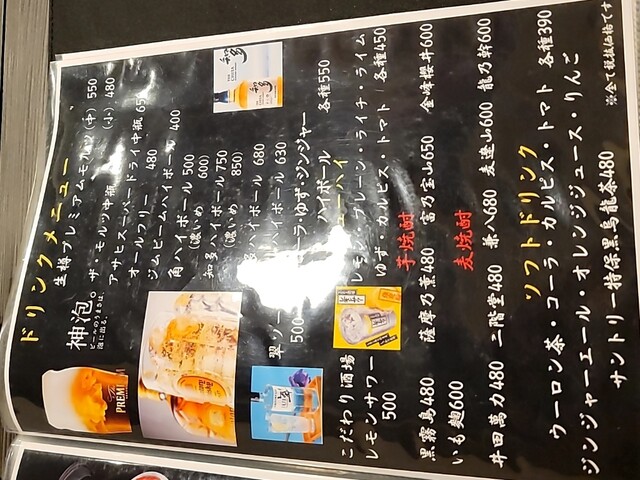 ドリンクメニュー
生樽プレミアムモルツ(中) 550
(小) 480
ザ・モルツ中瓶
アサヒスーパードライ中瓶 65
オールフリー 480
ジムビームハイボール 400
角ハイボール 500
(濃いめ 600)
知多ハイボール 750
(濃いめ 850)
ハイボール 680
ハイボール 630
コーラ・ゆず・ジンジャー
ハイボール 各種550
神泡。
ビールのうまさは、
泡に出る。
PREMI
知多
翠ソー
500
こだわり酒場
レモンサワー
500
ューハイ
レモン・プレーン・ライチ・ライム
ゆず・カルピス・トマト 各種450
芋焼酎
黒霧島480 薩摩乃薫480 富乃宝山650 金峰櫻井600
いも麹600
麦焼酎
井田萬力480 二階堂480 兼八680 麦達山600 龍乃幹600
ソフトドリンク
ウーロン茶・コーラ・カルピス・トマト 各種390
ジンジャーエール・オレンジジュース・りんご
サントリー特保黒烏龍茶480
※全て税抜価格です